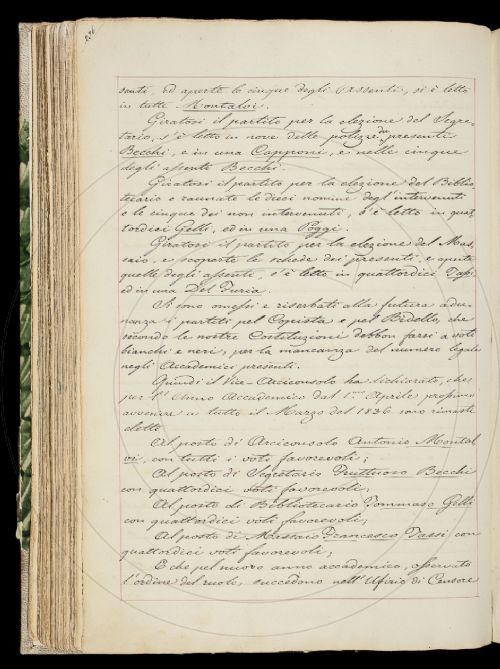 236
senti, ed aperte le cinque degli assenti, si è letto
in tutte Montalvi.
Giratosi il partito per la elezione del Segre-
tario, s'è letto in nove delle polize dei presenti
Becchi, e in una Capponi, e nelle cinque
degli assenti Becchi.
Giratosi il partito per la elezione del Biblio-
tecario e raunate le dieci nomine degl'intervenuti
e le cinque dei non intervenuti, s'è letto in quat-
tordici Gelli, ed in una Poggi.
Giratosi il partito per la elezione del Mas-
saio, e scoperte le schede dei presenti, e aperte
quelle degli assenti, s'è letto in quattordici Tassi
ed in una Del Furia.
Si sono omessi e riserbati alla futura adu-
nanza i partiti pel Copista e pel Bidello, che
secondo le nostre Costituzioni debbon farsi a voti
bianchi e neri, per la mancanza del numero legale
negli Accademici presenti.
Quindi il Vice-Arciconsolo ha dichiarato, che
per l'Anno Accademico dal 1mo Aprile prossimo
avvenire a tutto il Marzo del 1836 sono rimasti
eletti
Al posto di Arciconsolo Antonio Montal
vi, con tutti i voti favorevoli;
Al posto di Segretario Fruttuoso Becchi
con quattordici voti favorevoli;
Al posto di Bibliotecario Tommaso Gelli
con quattordici voti favorevoli;
Al posto di Massaio Francesco Tassi con
quattordici voti favorevoli;
E che pel nuovo anno accademico, osservato
l'ordine del ruolo, succedono nell'Ufizio di Censore